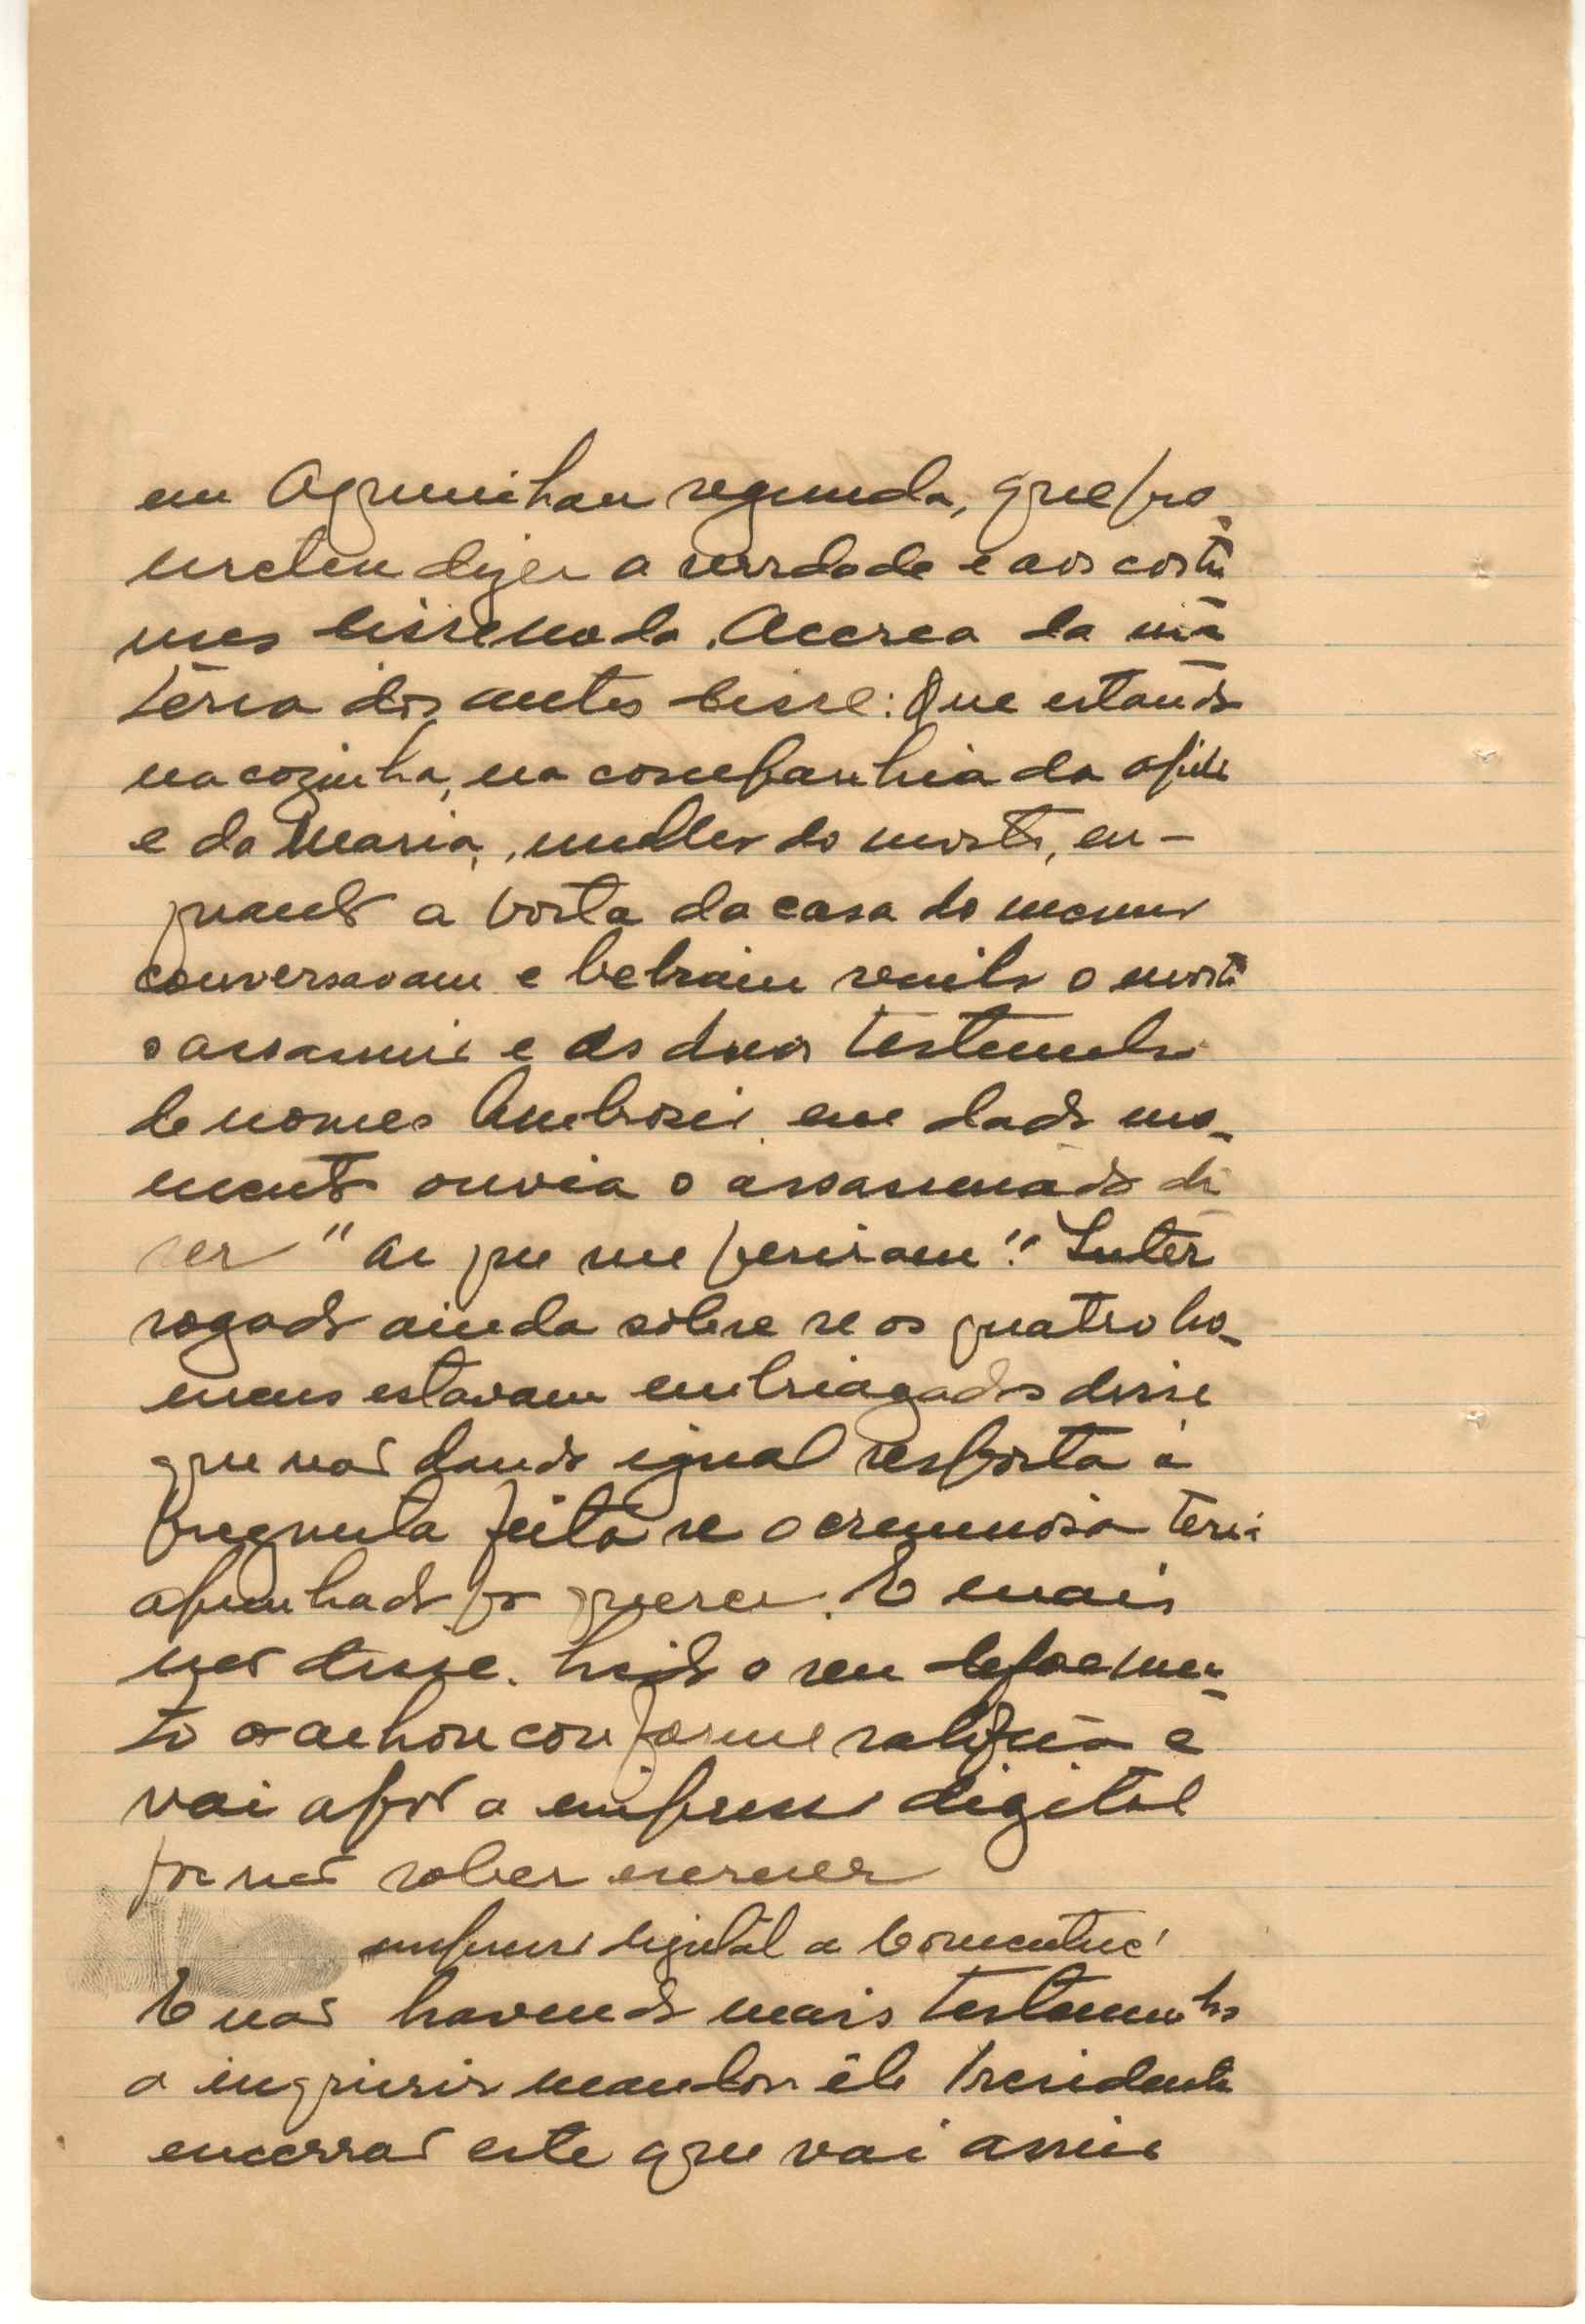 em segunda, que pro-
meteu dizer a verdade e aos costu
mes disse nada. Acerca da ma
teria dos autos disse: Que estando
na cozinha, na companhia da
e da Maria, mulher do morto, en-
quanto a porta da casa do mesmo
conversavam e bebiam vinho o morto
o assassino e as duas testemunhas
de nomes Ambrosio em dado mo-
mento ouvia o assassinado di
zer "ai que me feriram". Inter
rogado ainda sobre se os quatro ho-
mens estavam embriagados disse
que não dando igual resposta á
pregunta feita se o criminoso teria
apunhado por querer. E mais
não disse. Lido o seu depoimen-
to o achou conforme ratifica e
vai apôr a impressão digital
por não saber escrever
impressão digital a
E não havendo mais testemunhas
a inquirir mandou êle Presidente
encerrar este que vai assin